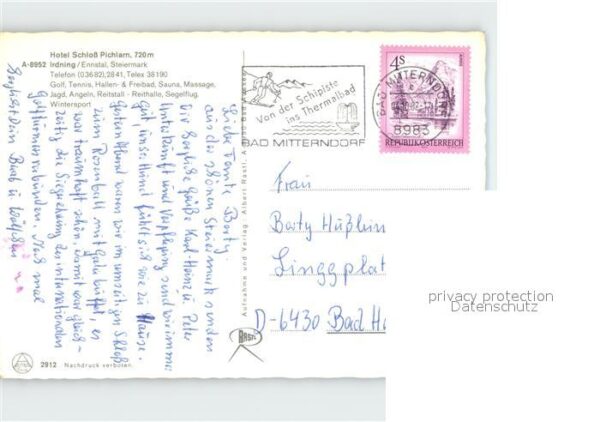 Hotel Schloß Pichlarn, 720m
A-8952 Irdning/Ennstal, Steiermark
Telefon (03682) 2841, Telex 38190
Golf, Tennis, Hallen- & Freibad, Sauna, Massage,
Jagd, Angeln, Reitstall - Reithalle, Segelflug,
Wintersport
Liebe Tante Barty.
aus der schönen Steiermark senden
Dir herzliche Grüße Karl-Heinz u. Peter
Unterkunft und Verpflegung sind wie immer
gut, unser Hund fühlt sich wie zu Hause.
Gestern Abend waren wir im Schloß
zum Rosenball mit Galabüffet, es
war traumhaft schön, damit war gleich-
zeitig die Siegerehrung des internationalen
Golfturniers verbunden.
herzlichst Dein
Von der Schipiste
ins Thermalbad
BAD MITTERNDORF
BAD MITTERNDORF
8983
4S
REPUBLIK ÖSTERREICH
Frau
Barty Hüßlein
Linggplat
D-6430 Bad He
Aufnahme und Verlag: Albert Rastl,
RASTL
2912 Nachdruck verboten.
privacy protection
Datenschutz